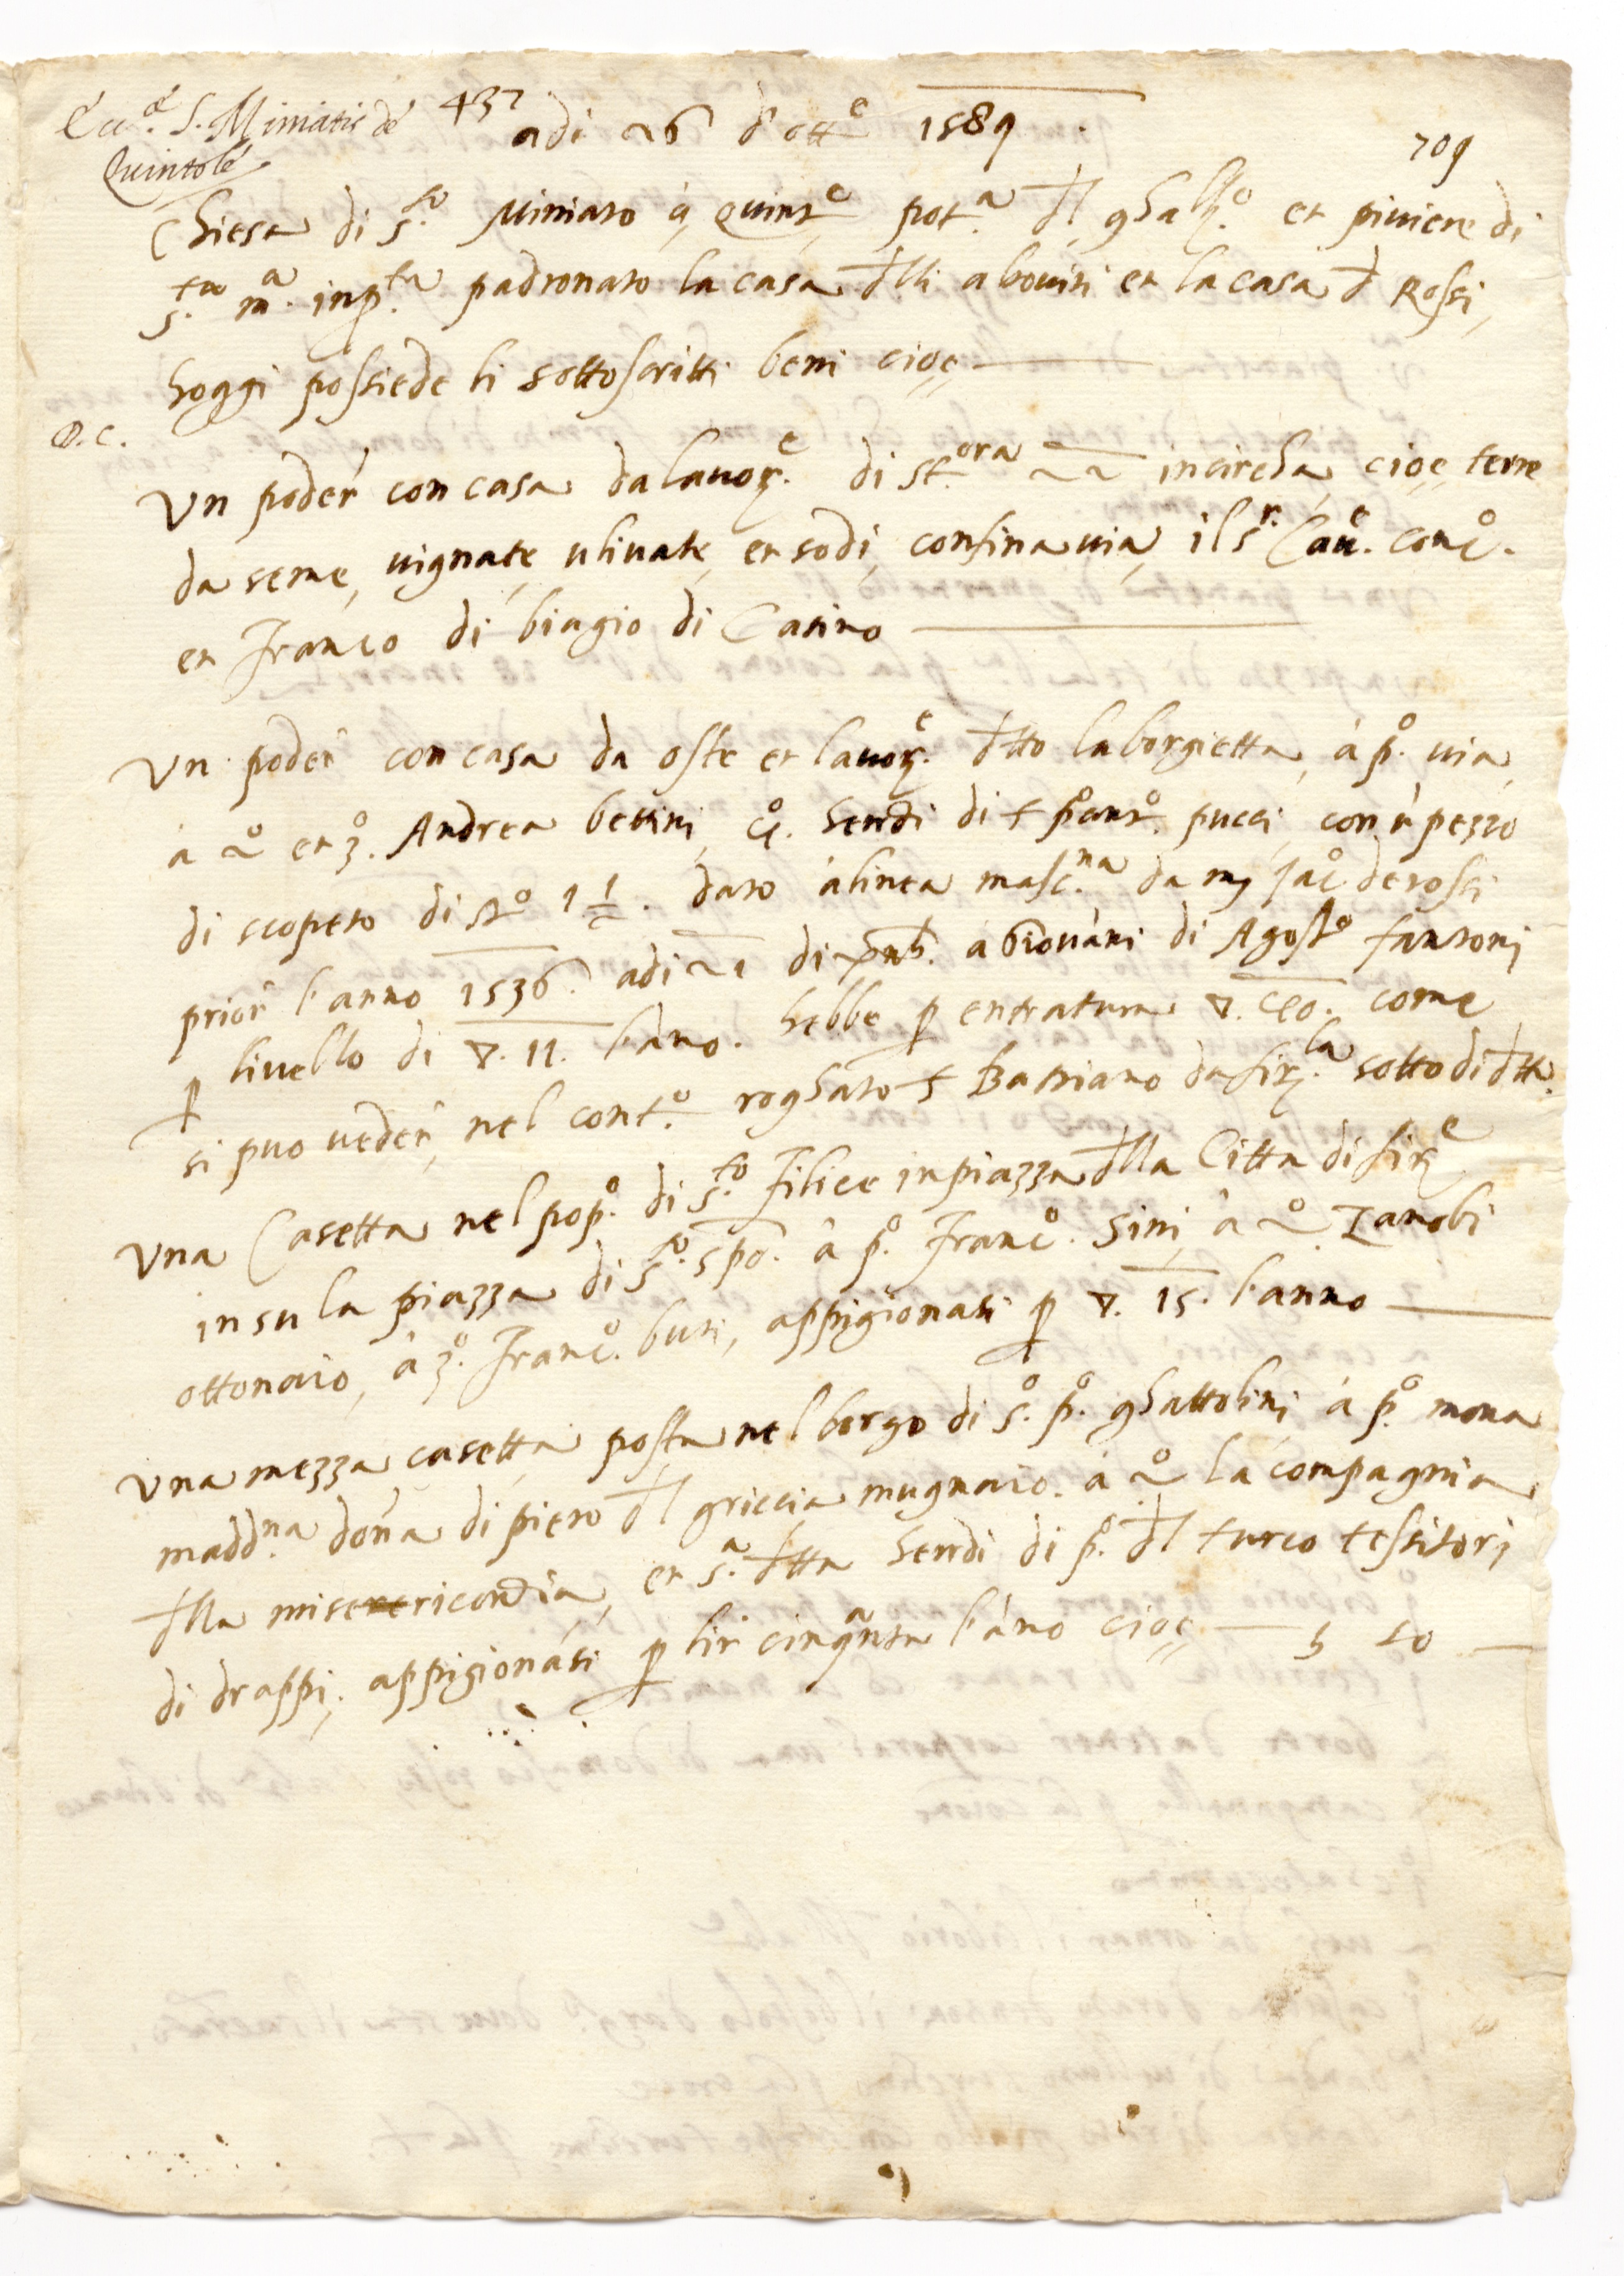 Ecc.a S. Miniatis de 437 adi 26 d ott.e 1589 . 709
Quintole
Chiesa di S.to Miniato à Quint.e pot.a dl ghall.o et piviere di
S.ta M.a inp.ta padronato la casa dlli aboviti et la casa d Rossi,
hoggi possiede li sottoscritti beni cioe
D. C.
Vn poder con casa da lavor.e di st.ora 22 incircha, cioe terre
da seme, vignate, ulivate, et sodi, confina via, il S.r Cav.e Conc.
et Franco di biagio di Casino
Vn poder con casa da oste et lavor.e dtto la borgietta, à p.o via,
à 2.o et 3.o Andrea bettini, heredi di pucci, con ũ pezzo
di scopeto di st.o 1 1/2. dato à linea masc.na da Jac.o de rossi
prior l'anno 1536. adi 21 di a Giovani di Agost.o fantoni
p livello di ▽. 11. l'ano. hebbe p entratura ▽. come
si puo veder, nel cont.o roghato Bastiano da fir.la sotto di dtt.o
Vna Casetta nel pop.o di S.to Filice in piazza dlla Citta di fir.e
in su la piazza di S.to Sp.o à p.o Franc.o Sini, à 2.o Zanobi
ottonaio, à 3.o Franc.o buti, appigionasi p ▽. 15. l'anno
Vna mezza casetta posta nel borgo di S.o p.o ghattolini, à p.o mona
madd.na dona di piero dl griccia mugnaio. à 2.o la compagnia
dlla misericordia, et S.a dtta heredi di p.o dl turco tessitori
di drappi, appigionasi p lir cinq.anta l'ano cioe — 50 —